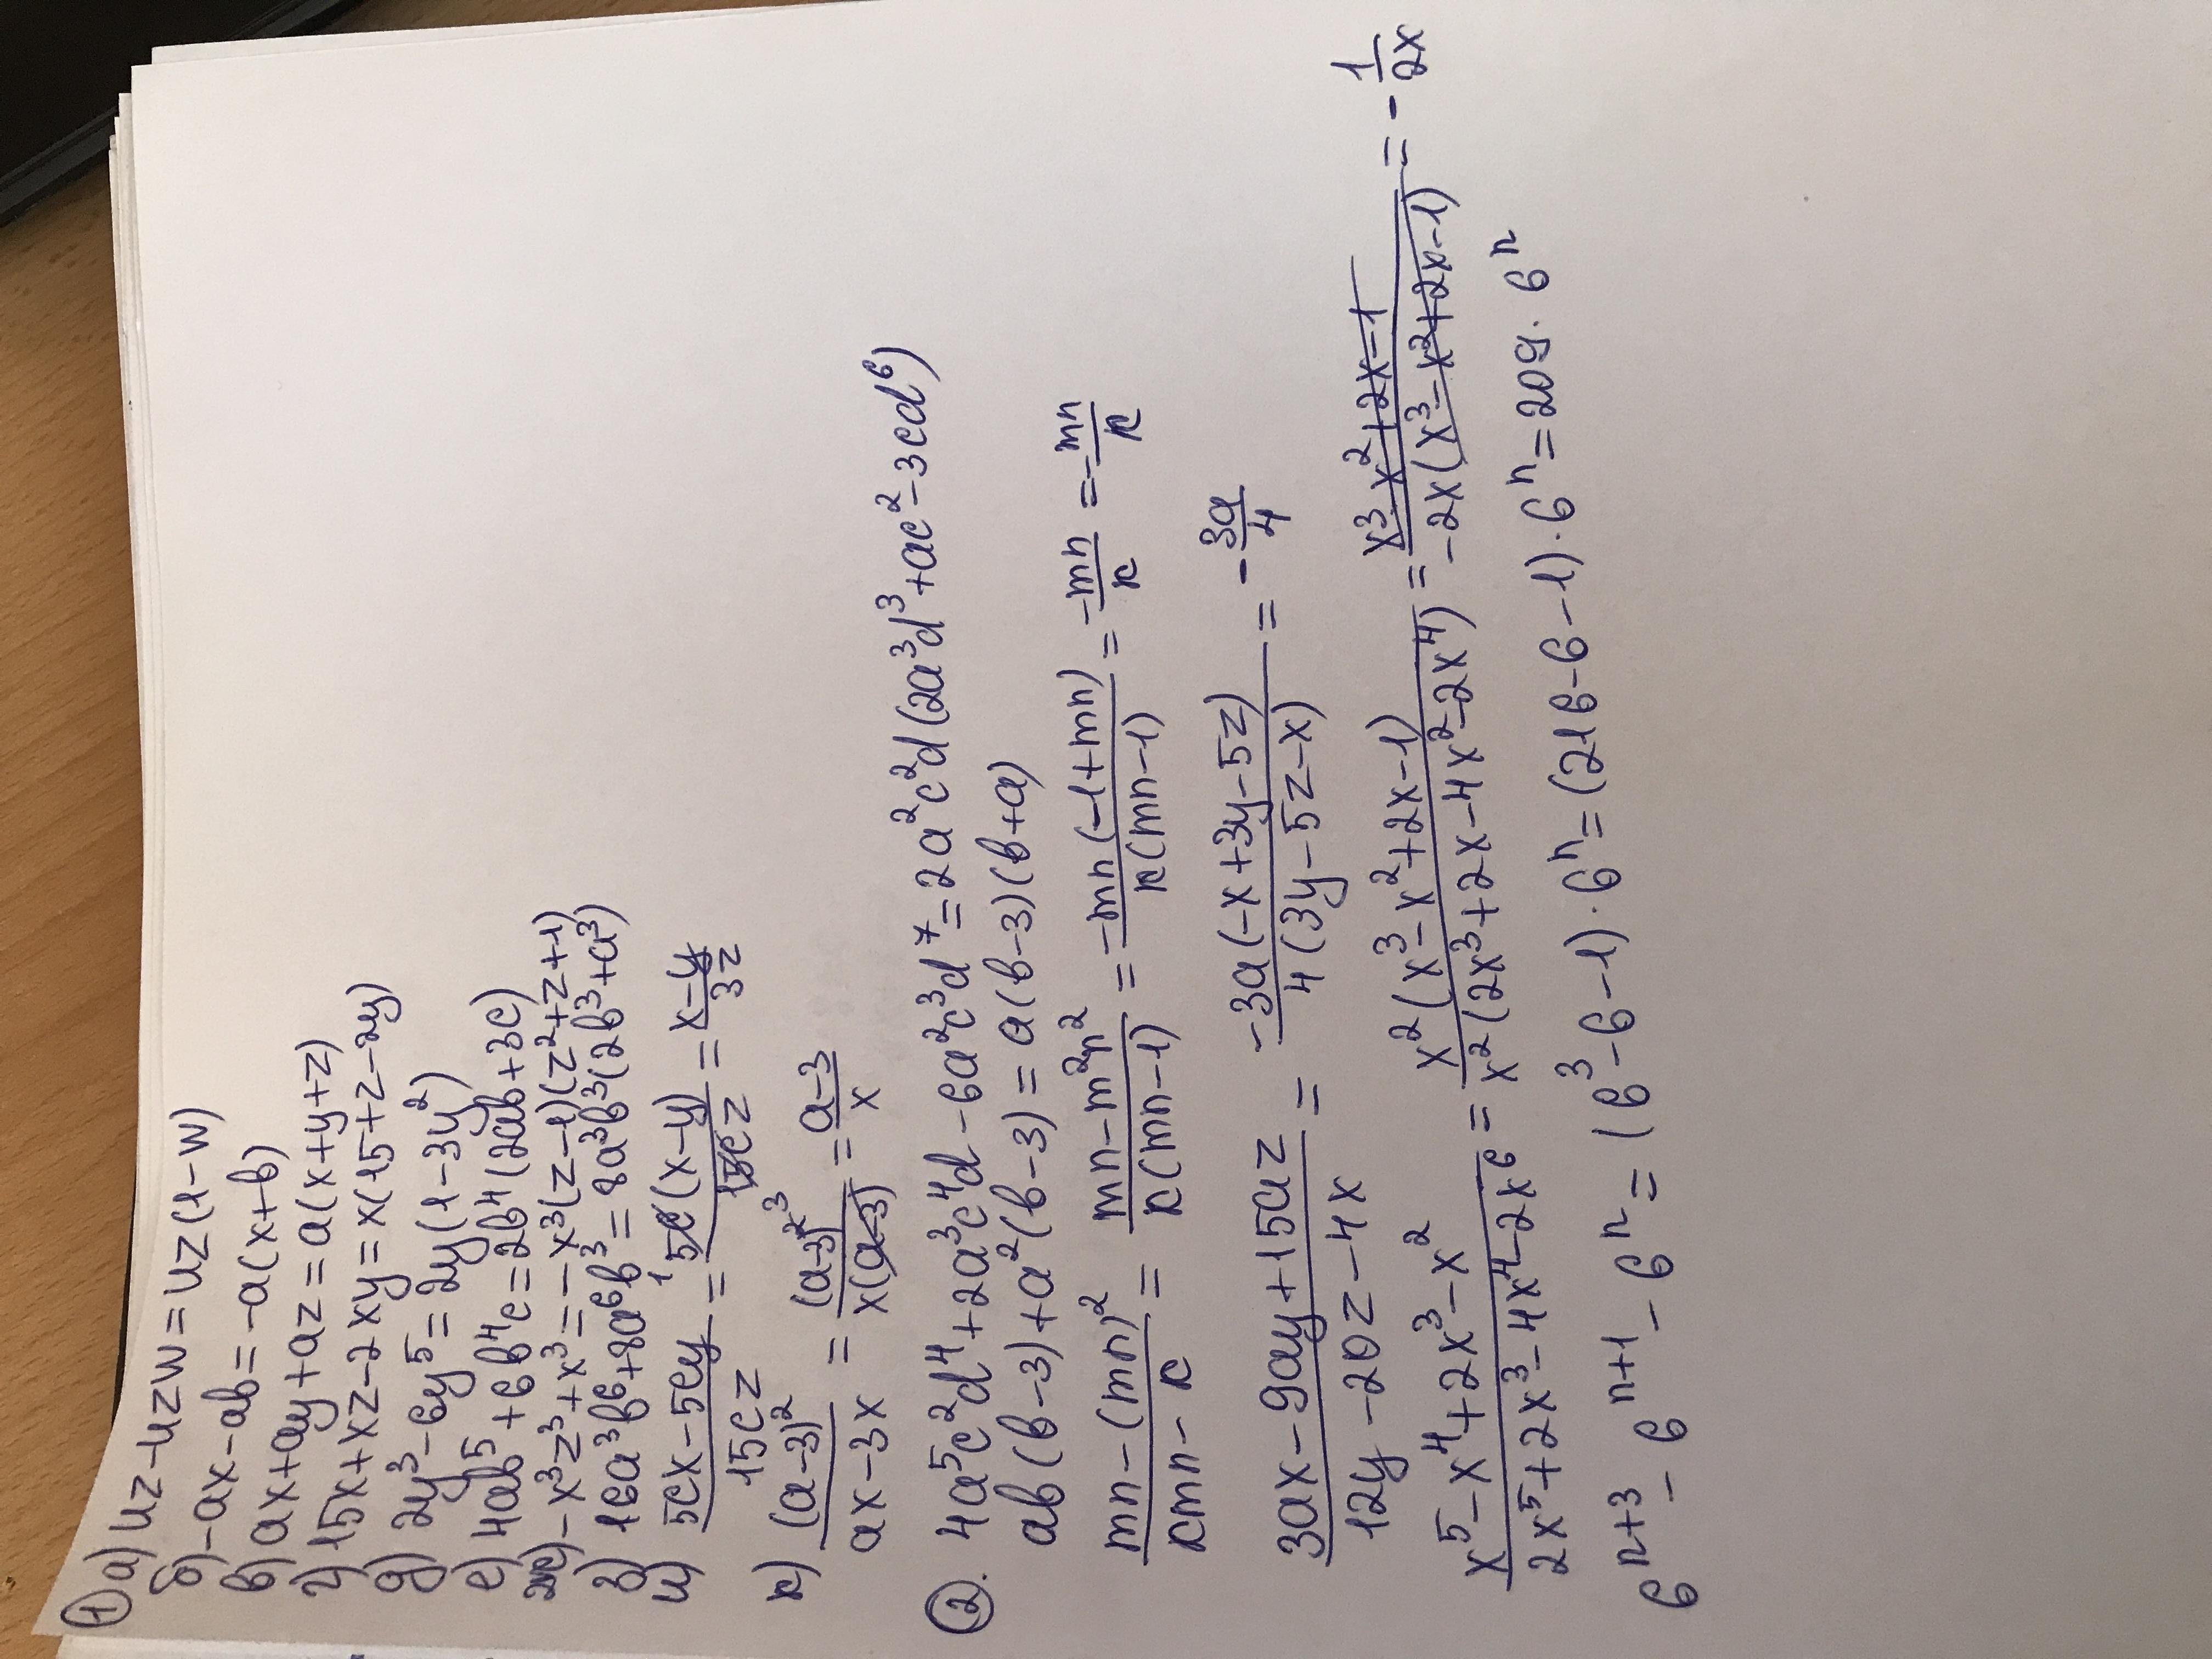 ① а) uz-uzw=uz(1-w)
б) -ax-ab=-a(x+b)
в) ax+ay+az=a(x+y+z)
г) 15x+xz-2xy=x(15+z-2y)
д) 2y³-6y⁵=2y(1-3y²)
е) 4ab⁵+6b⁴c=2b⁴(2ab+3c)
ж) -x³z³+x³=-x³(z-1)(z²+z+1)
з) 16a³b⁶+8a⁶b³=8a³b³(2b³+a³)
и) (5cx-5cy)/(15cz) = (5c(x-y))/(15cz) = (x-y)/(3z)
к) (a-3)²/(ax-3x) = (a-3)²/(x(a-3)) = (a-3)/x
②. 4a⁵c²d⁴+2a³c⁴d-6a²c³d⁷=2a²c²d(2a³d³+ac²-3cd⁶)
ab(b-3)+a²(b-3)=a(b-3)(b+a)
(mn-(mn)²)/(kmn-k) = (mn-m²n²)/(k(mn-1)) = (-mn(-1+mn))/(k(mn-1)) = (-mn)/k = -mn/k
(3ax-9ay+15az)/(12y-20z-4x) = (-3a(-x+3y-5z))/(4(3y-5z-x)) = -3a/4
(x⁵-x⁴+2x³-x²)/(2x⁵+2x³-4x⁴-2x⁶) = (x²(x³-x²+2x-1))/(x²(2x³+2x-4x²-2x⁴)) = (x³-x²+2x-1)/(-2x(x³-x²+2x-1)) = -1/2x
6ⁿ⁺³-6ⁿ⁺¹-6ⁿ=(6³-6-1)·6ⁿ=(216-6-1)·6ⁿ=209·6ⁿ